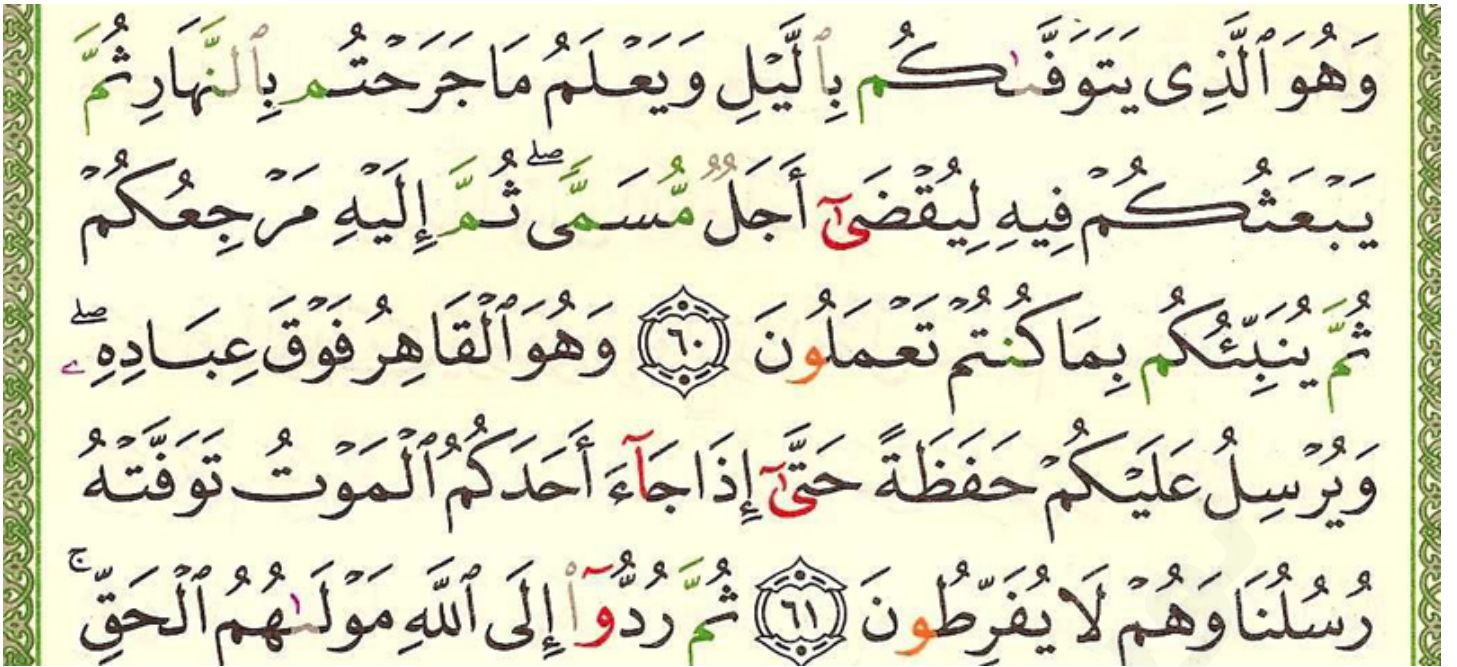 وَهُوَ ٱلَّذِى يَتَوَفَّىٰكُم بِٱلَّيْلِ وَيَعْلَمُ مَا جَرَحْتُم بِٱلنَّهَارِ ثُمَّ
يَبْعَثُكُمْ فِيهِ لِيُقْضَىٰٓ أَجَلٌ مُّسَمًّى ۖ ثُمَّ إِلَيْهِ مَرْجِعُكُمْ
ثُمَّ يُنَبِّئُكُم بِمَا كُنتُمْ تَعْمَلُونَ ٦٠ وَهُوَ ٱلْقَاهِرُ فَوْقَ عِبَادِهِۦ ۖ
وَيُرْسِلُ عَلَيْكُمْ حَفَظَةً حَتَّىٰٓ إِذَا جَآءَ أَحَدَكُمُ ٱلْمَوْتُ تَوَفَّتْهُ
رُسُلُنَا وَهُمْ لَا يُفَرِّطُونَ ٦١ ثُمَّ رُدُّوٓا۟ إِلَى ٱللَّهِ مَوْلَىٰهُمُ ٱلْحَقِّ ۚ